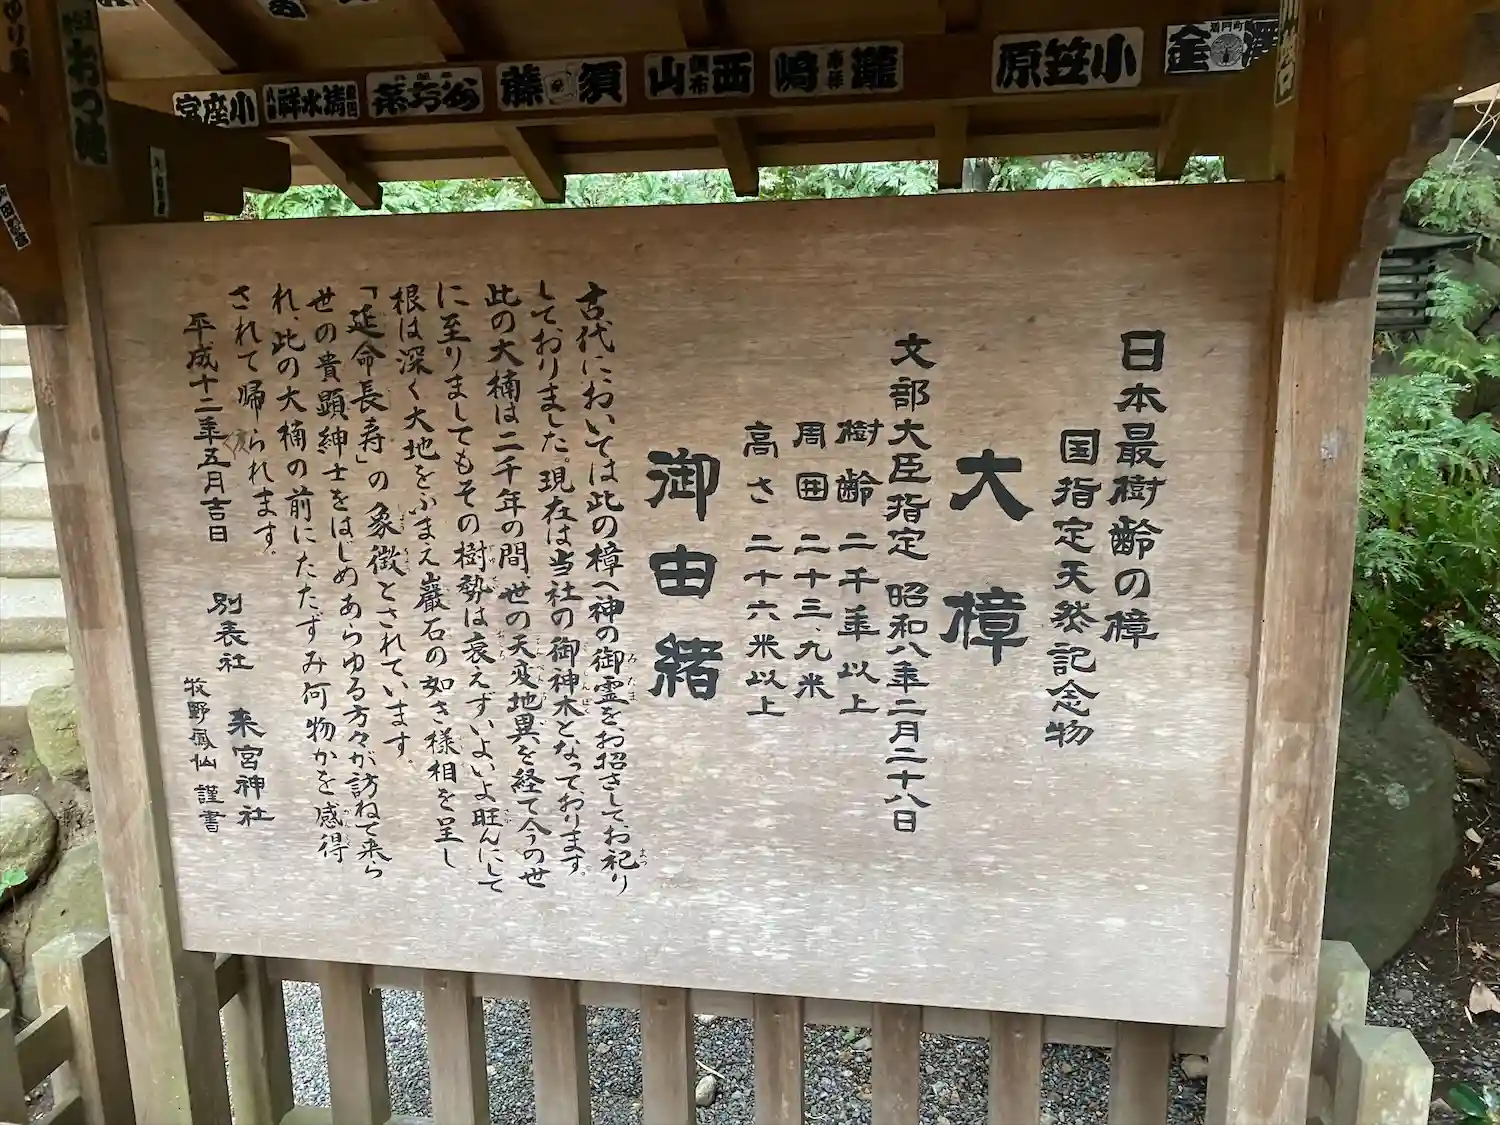 日本最樹齢の樟
国指定天然記念物
大樟
文部大臣指定 昭和八年二月二十八日
樹齢 二千年以上
周囲 二十三、九米
高さ 二十六米以上
御由緒
古代においては此の樟へ神の御霊をお招きしてお祀り
しておりました。現在は当社の御神木となっております。
此の大楠は二千年の間世の天変地異を経て今の世
に至りましてもその樹勢は衰えず、いよいよ旺んにして
根は深く大地をふまえ巌石の如き様相を呈し
「延命長寿」の象徴とされています。
世の貴顕紳士をはじめあらゆる方々が訪ねて来ら
れ、此の大楠の前にたたずみ何物かを感得
されて帰られます。
平成十二年五月吉日
別表社 来宮神社
牧野鳳仙 謹書
小笠原
瀧嶋
西山
須藤
清水祥
小座